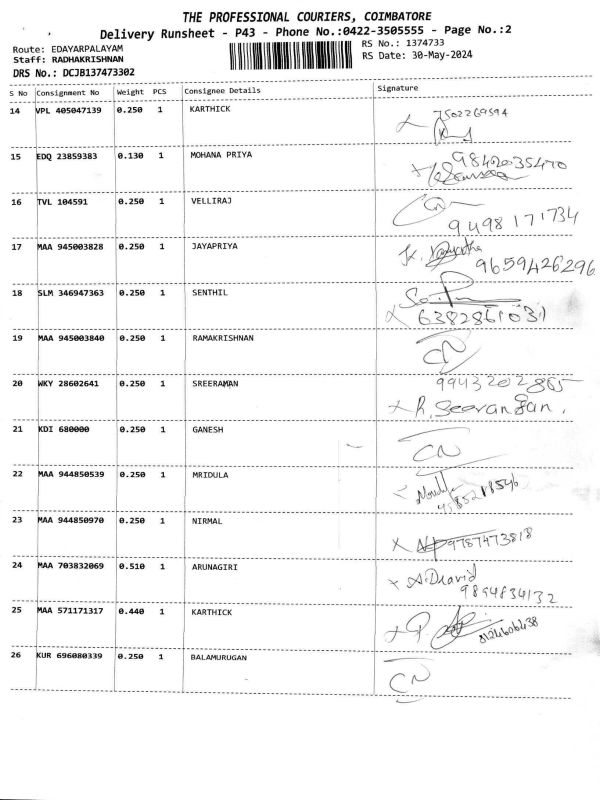 THE PROFESSIONAL COURIERS, COIMBATORE
Delivery Runsheet - P43 - Phone No.:0422-3505555 - Page No.:2
Route: EDAYARPALAYAM
RS No.: 1374733
Staff: RADHAKRISHNAN
RS Date: 30-May-2024
DRS No.: DCJB137473302
S No Consignment No Weight PCS Consignee Details Signature
14 VPL 405047139 0.250 1 KARTHICK 7502269594
15 EDQ 23859383 0.130 1 MOHANA PRIYA 9842035470
16 TVL 104591 0.250 1 VELLIRAJ CN
9498171734
17 MAA 945003828 0.250 1 JAYAPRIYA
9659426296
18 SLM 346947363 0.250 1 SENTHIL
6382861031
19 MAA 945003840 0.250 1 RAMAKRISHNAN CN
20 WKY 28602641 0.250 1 SREERAMAN 9943202865
x R. Seerangan.
21 KDI 680000 0.250 1 GANESH CN
22 MAA 944850539 0.250 1 MRIDULA
23 MAA 944850970 0.250 1 NIRMAL
x 9787473818
24 MAA 703832069 0.510 1 ARUNAGIRI x A. Dravid
9894834132
25 MAA 571171317 0.440 1 KARTHICK
x P. 8124606438
26 KUR 696080339 0.250 1 BALAMURUGAN CN